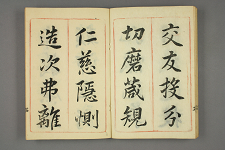 交友投分
切磨葴規
仁慈隱惻
造次弗離